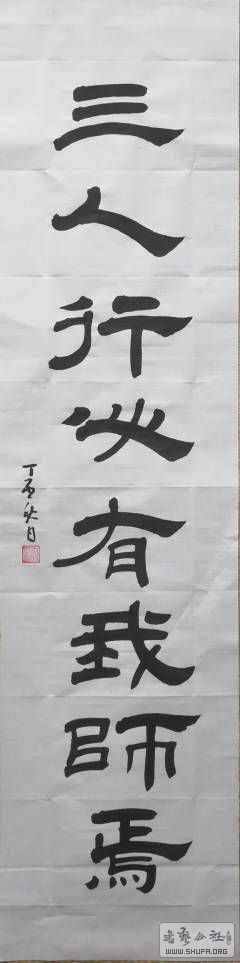 三人行必有我師焉
丁酉秋月
书艺公社
WWW.SHUFA.ORG